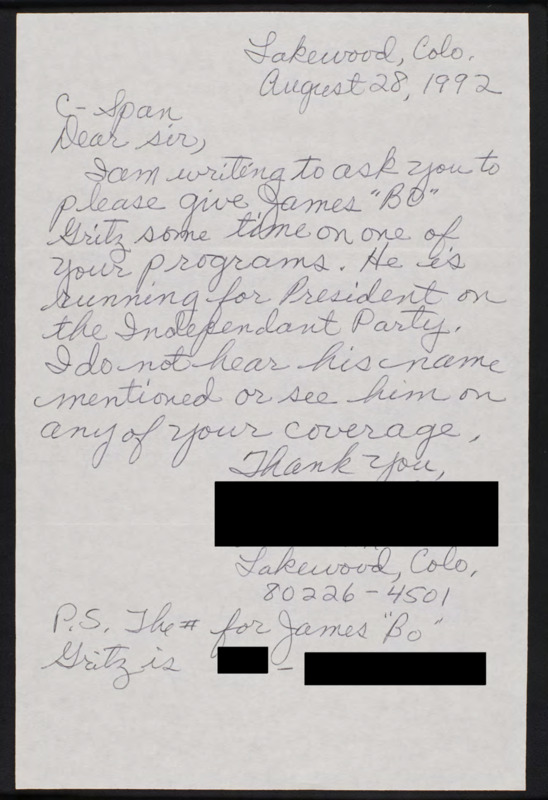 Lakewood, Colo.
August 28, 1992
C-Span
Dear sir,
I am writing to ask you to
please give James "BO"
Gritz some time on one of
your programs. He is
running for President on
the Independant Party.
I do not hear his name
mentioned or see him on
any of your coverage.
Thank you,
Lakewood, Colo.
80226-4501
P.S. The # for James "Bo"
Gritz is -